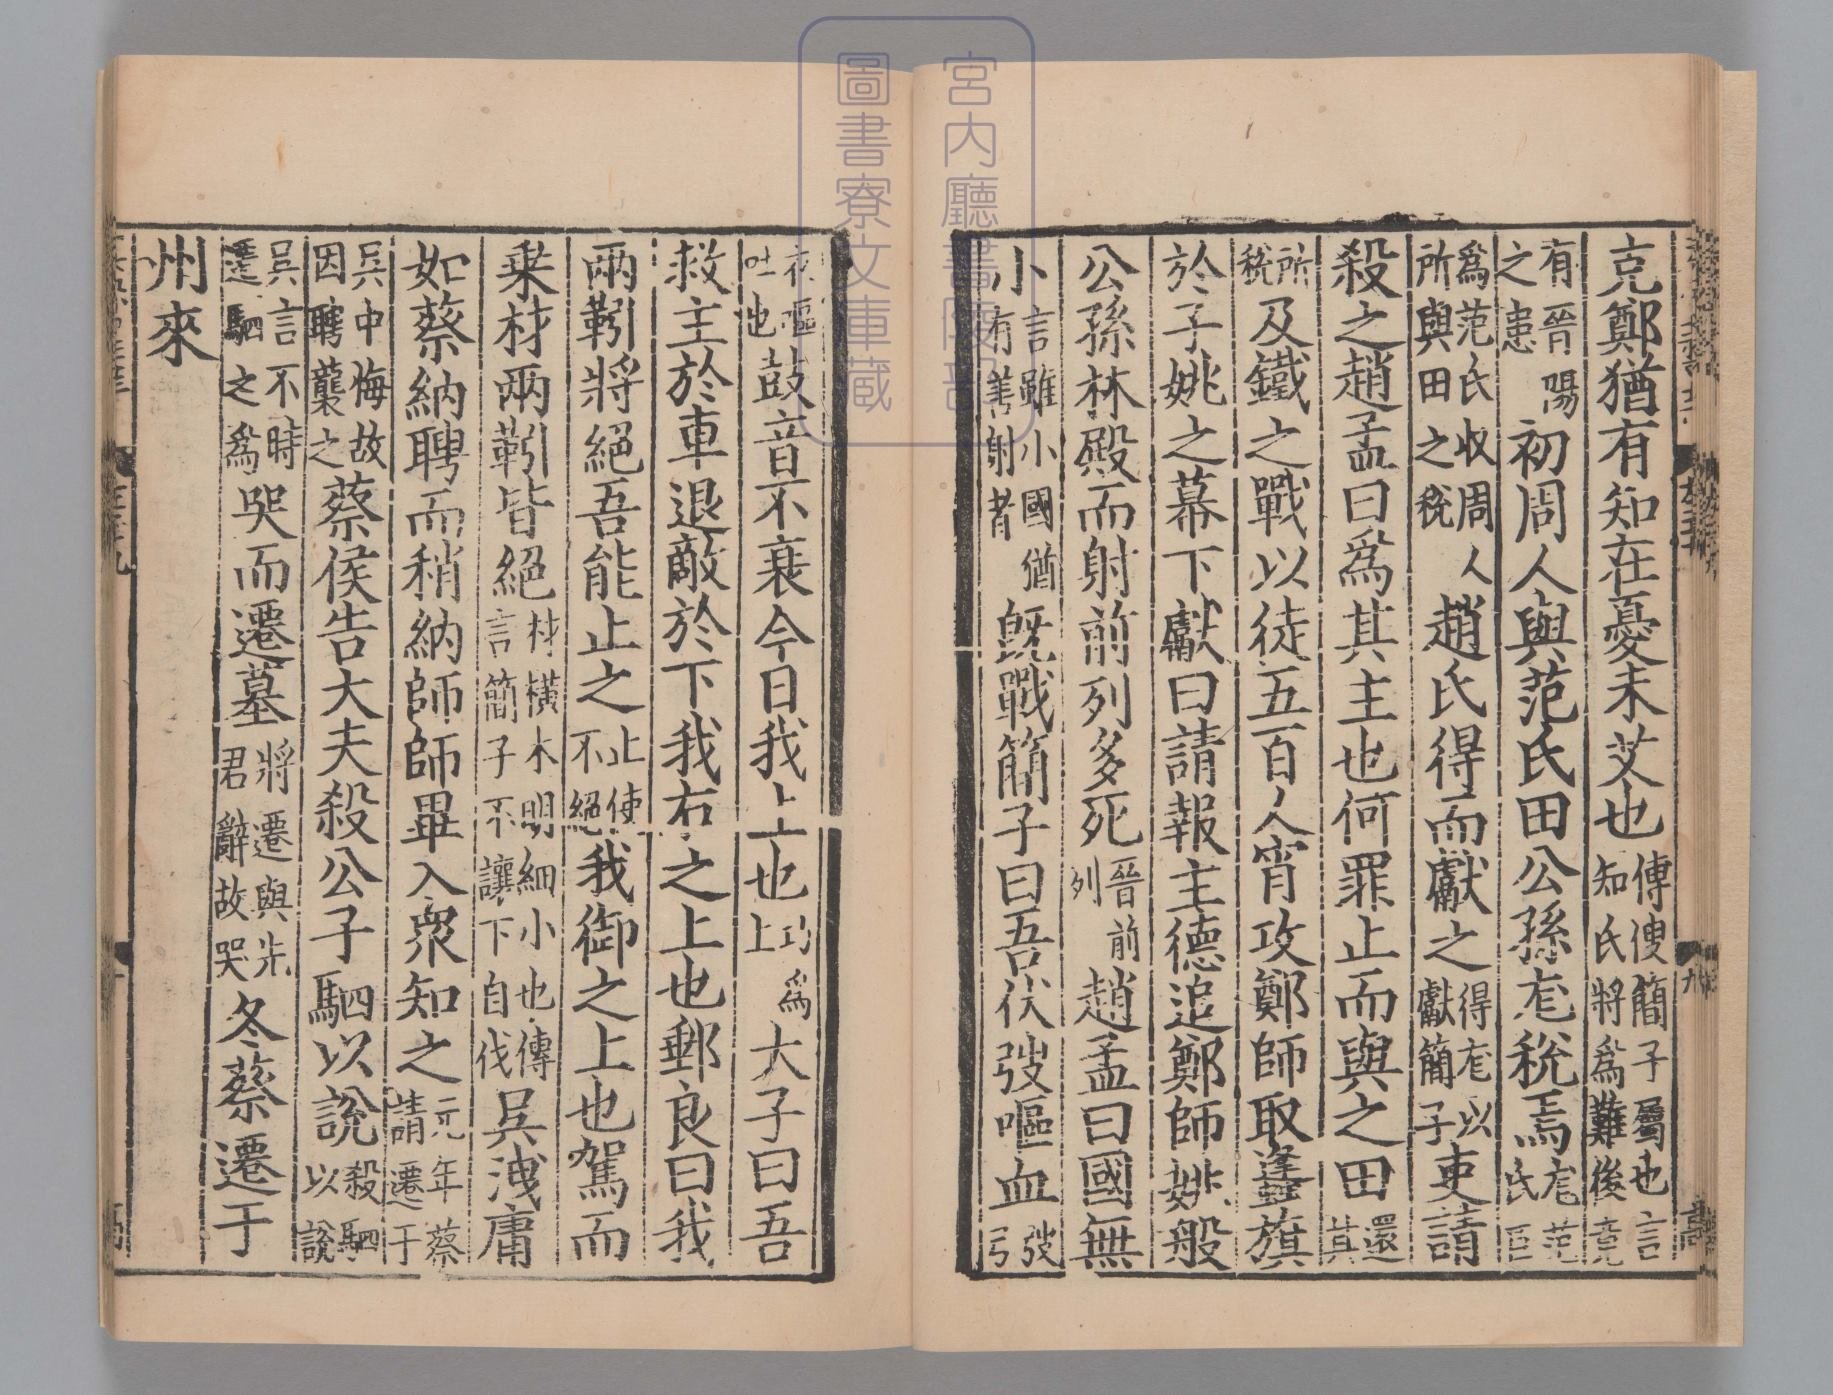 克鄭猶有知在憂未艾也傳傁簡子屬也言知氏將爲難後竟
有晉陽之患初周人與范氏田公孫尨稅焉尨范氏臣
爲范氏收周人所與田之稅趙氏得而獻之得尨以獻簡子吏請
殺之趙孟曰爲其主也何罪止而與之田還其
所稅及鐵之戰以徒五百人宵攻鄭師取蠭旗
於子姚之幕下獻曰請報主德追鄭師姚般
公孫林殿而射前列多死晉前列趙孟曰國無
小言雖小國猶有善射者既戰簡子曰吾伏弢嘔血弢弓
衣嘔吐也鼓音不衰今日我上也功爲上大子曰吾
救主於車退敵於下我右之上也郵良曰我
兩靷將絕吾能止之止使不絕我御之上也駕而
乗材兩靷皆絕材橫木明細小也傳言簡子不讓下自伐吳洩庸
如蔡納聘而稍納師師畢入衆知之元年蔡請遷于
吳中悔故因聘襲之蔡侯告大夫殺公子駟以說殺駟以說
吳言不時遷駟之爲哭而遷墓將遷與先君辭故哭冬蔡遷于
州來
宮内廳書陵部
圖書寮文庫蔵